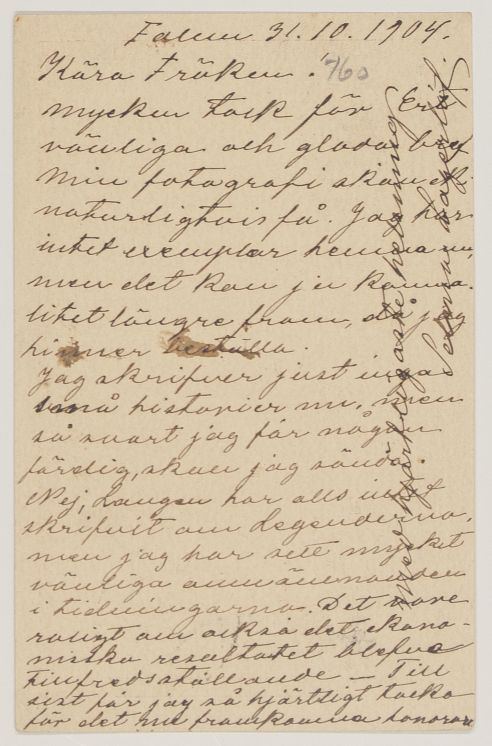 Falun 31.10.1904.
Kära Fröken.
Mycken tack för Ert
vänliga och glada bref
Min fotografi skall ni
naturligtvis få. Jag har
intet exemplar hemma nu,
men det kan ju komma
litet längre fram, då jag
hinner beställa.
Jag skrifver just inga
små historier nu, men
så snart jag får någon
färdig, skall jag sända.
Nej, Langen har alls intet
skrifvit om Legenderna,
men jag har sett mycket
vänliga omnämnanden
i tidningarna. Det vore
roligt om också det ekono-
miska resultatet blefve
tillfredsställande — Till
sist får jag så hjärtligt tacka
för det nu framkomna honorar
Med hjärtligaste helsning
Selma Lagerlöf.